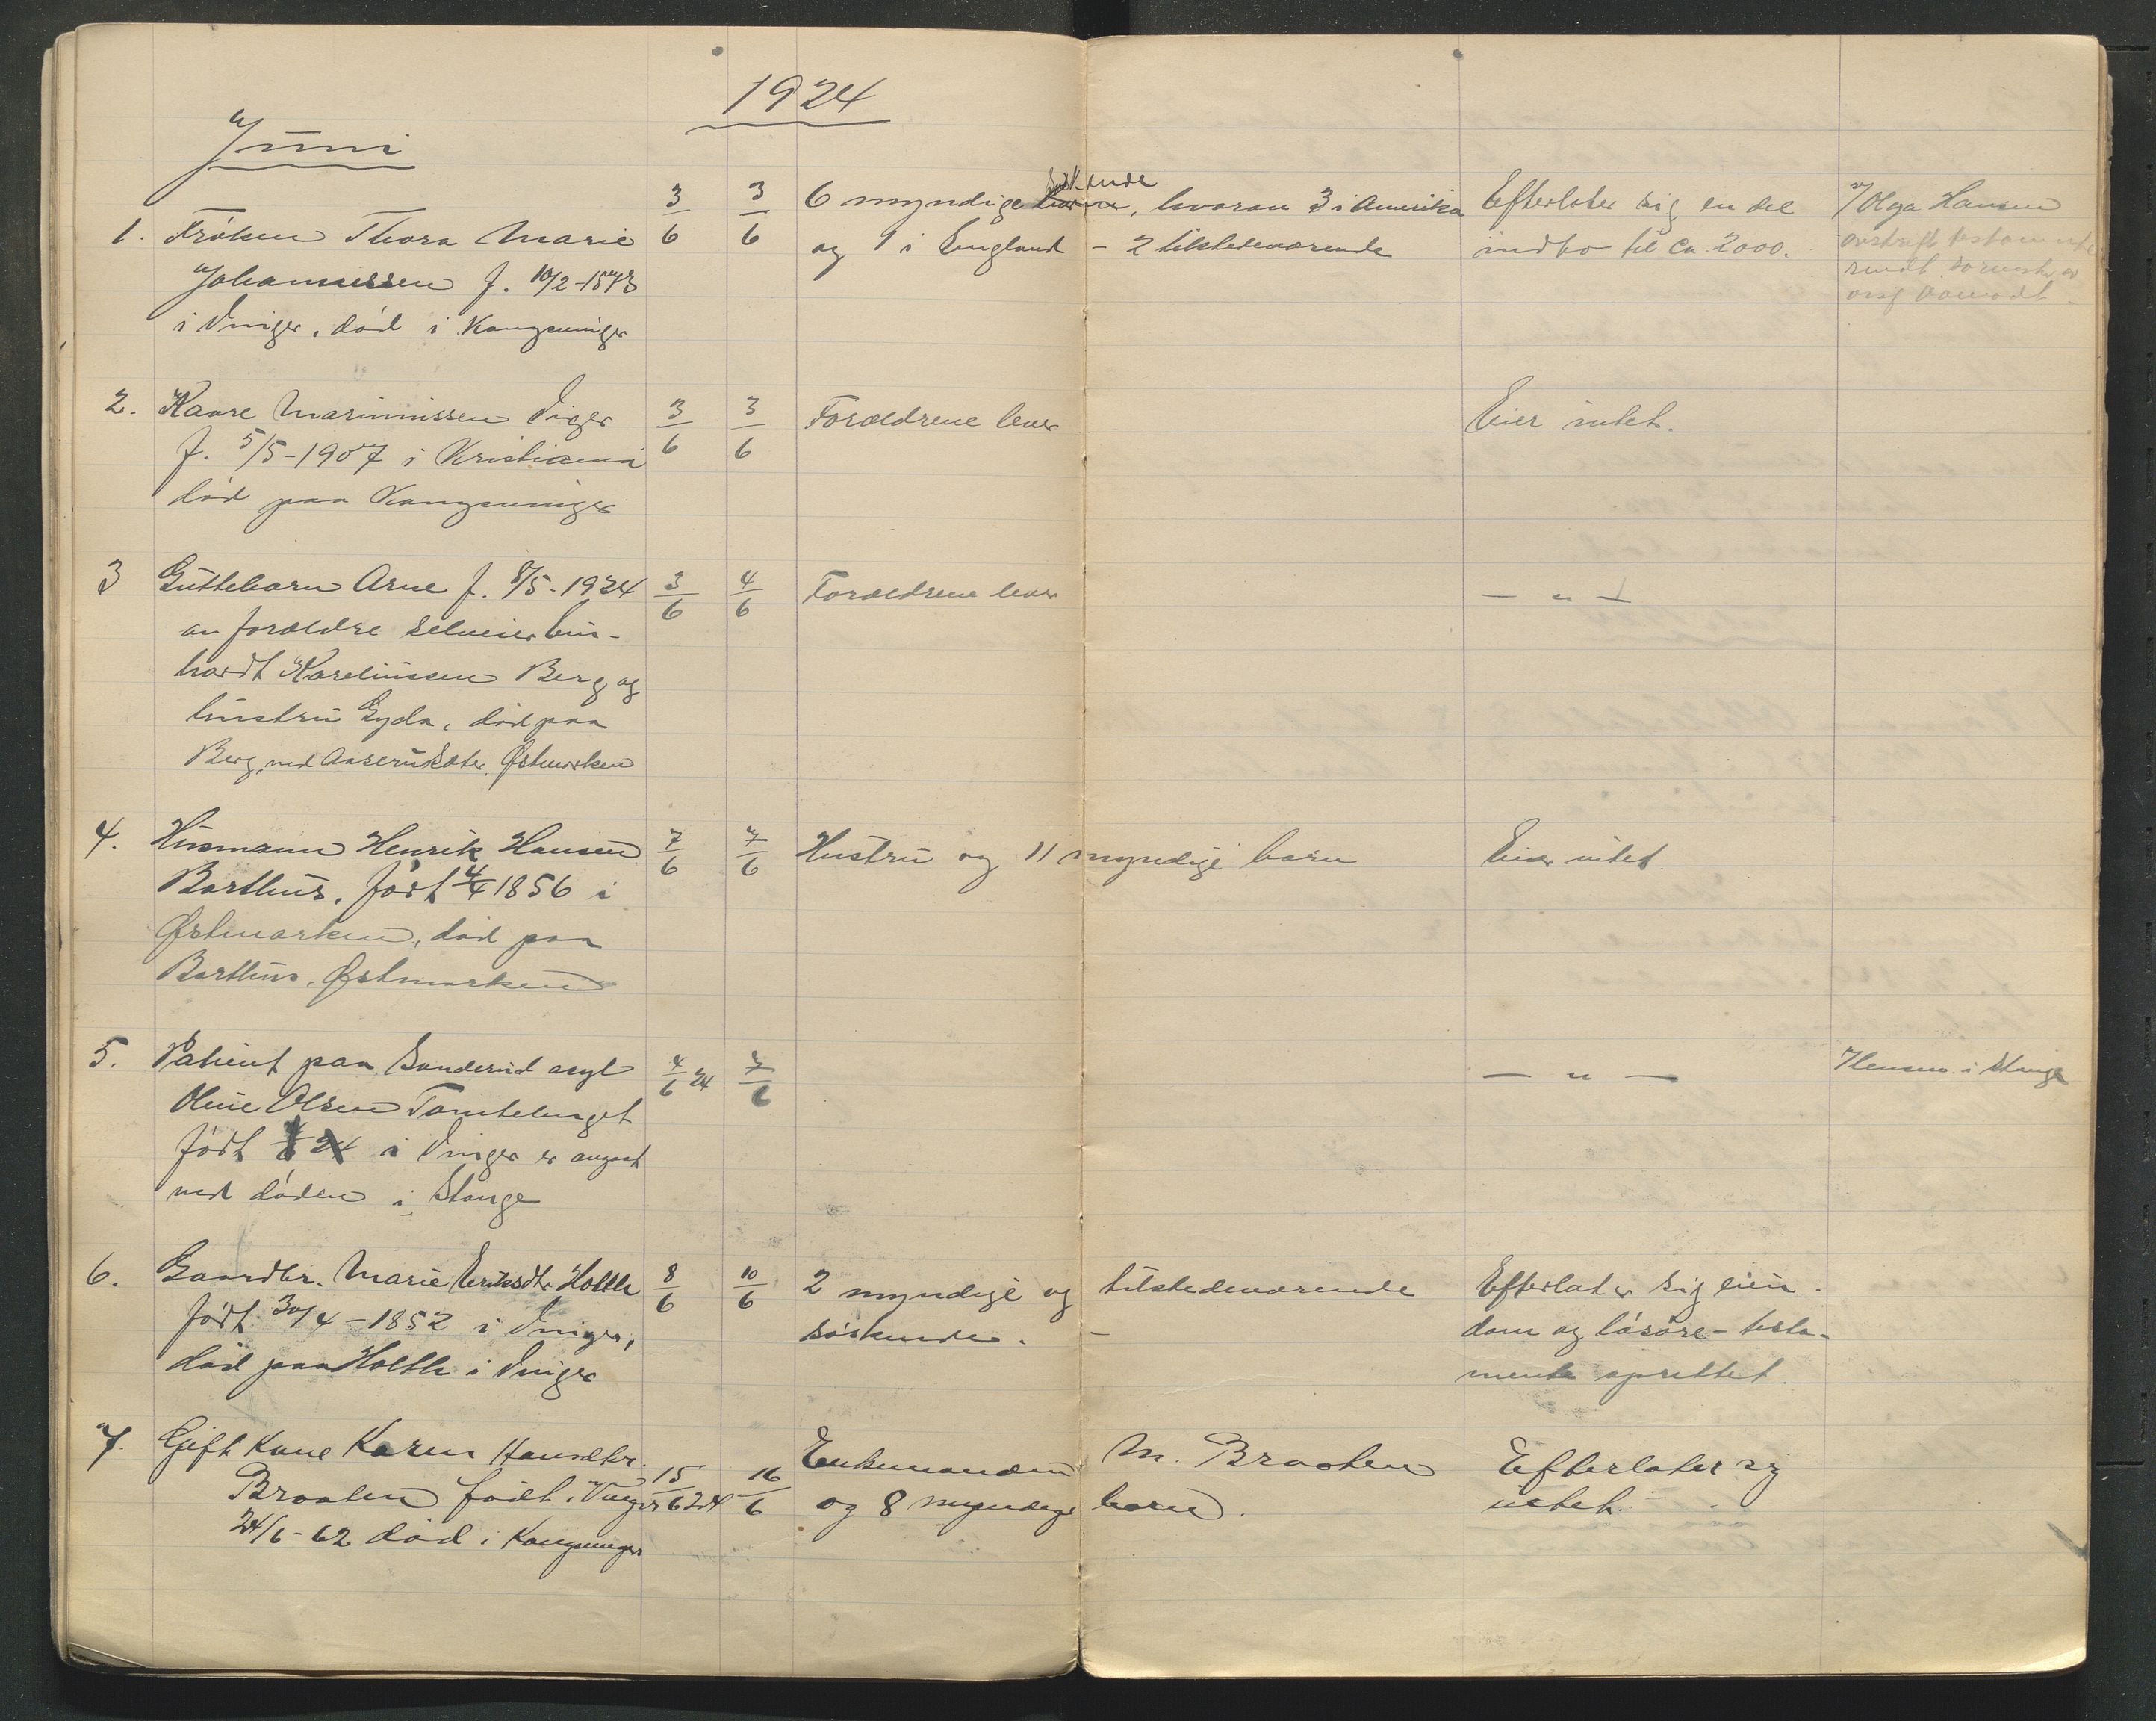 1924
Juni
1. Frøken Thora Marie
Johannessen f. 10/2-1873
i Vinger, død i Kongsvinger
3/6
3/6
6 myndige søskende, hvorav 3 i Amerika
og 1 i England - 2 tilstedeværende
Efterlater sig en del
indbo til ca. 2000.
Olga Hansen
avskrift testamente
sendt
2. Kaare Marinussen Vinger
f. 5/5-1907 i Kristiania
død paa Kongsvinger
3/6
3/6
Forældrene lever
Eier intet.
3 Guttebarn Arne f. 8/5-1924
av forældre selveier
Karelinssen Berg og
hustru Gyda, død paa
Berg ved Aaserudsæter Østmarken
3/6
4/6
Forældrene lever
- " -
4. Husmann Henrik Hansen
Barthus, født 4/4 1856 i
Østmarken, død paa
Barthus, Østmarken
7/6
7/6
Hustru og 11 myndige barn
Eier intet.
5. Patient paa Sanderud asyl
Oline Olsen Tomtebaget
født i Vinger er avgaat
ved døden i Stange
4/6 24
7/6
- " -
i Stange
6. Gaardbr. Marie Eriksdtr Holth
født 30/4-1852 i Vinger,
død paa Holth i Vinger
8/6
10/6
2 myndige og tilstedeværende
søskende. -
Efterlater sig eien-
dom og løsøre - testa-
mente oprettet.
7. Gift Kone Karen
Braaten født i Vinger
24/6-62 død i Kongsvinger
15/6 24
16/6
Enkemanden M. Braaten
og 8 myndige barn.
Efterlater sig
intet.